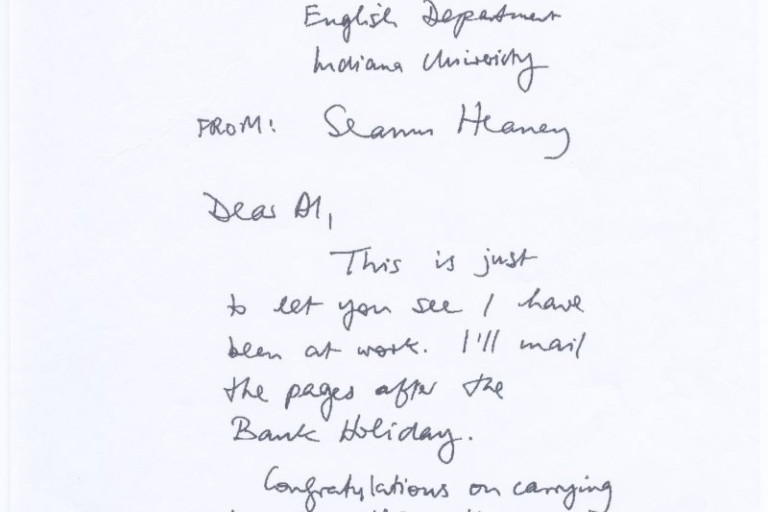 English Department
Indiana University
FROM: Seamus Heaney
Dear Al,
This is just
to let you see I have
been at work. I'll mail
the pages after the
Bank Holiday.
Congratulations on carrying